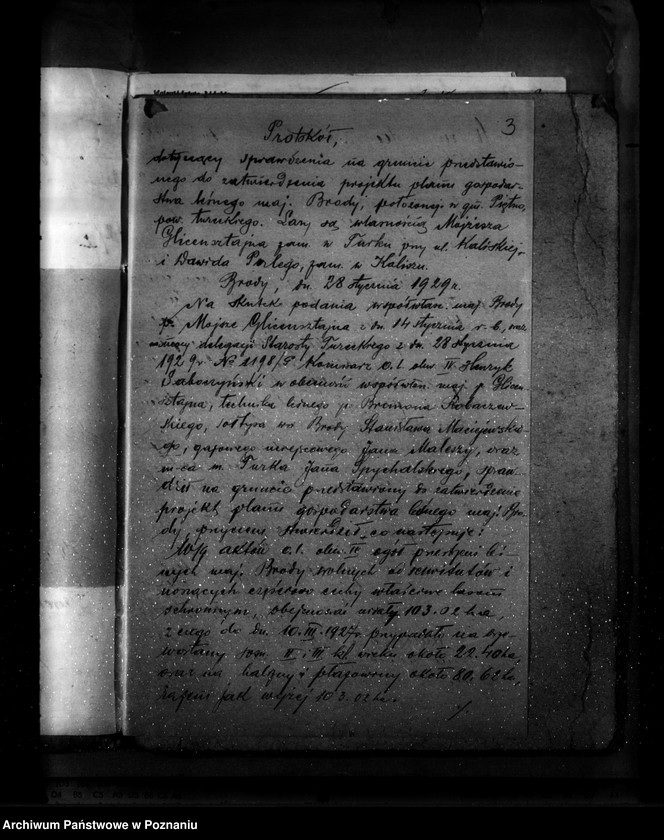 3
Protokół,
dotyczący sprawdzenia na gruncie przedstawio-
nego do zatwierdzenia projektu planu gospodar-
stwa leśnego maj. Brody, położonego w gm. Piętno,
pow. tureckiego. Lasy są własnością Mojżesza
Glicensztajna zam. w Turku przy ul. Kaliskiej
i Dawida Perlego, zam. w Kaliszu.
Brody, dn. 28 stycznia 1929 r.
Na skutek podania współwłaśc. maj. Brody
p. Mojsze Glicensztajna z dn. 14 stycznia r. b., oraz
delegacji Starosty Tureckiego z dn. 28 stycznia
1929 r. № 1198/ Komisarz o.l. okr. IV Henryk
w obecności współwłaśc. maj. p. Glicen-
sztajna, technika leśnego p. Bronisława
skiego, sołtysa wsi Brody Stanisława Maciejewskie-
go, gajowego miejscowego Jana Maleszy, oraz
m-ca m. Turka Jana Spychalskiego, spraw-
dził na gruncie przedstawiony do zatwierdzenia
projekt planu gospodarstwa leśnego maj. Bro-
dy, przyczem stwierdził co następuje:
Wg aktów o.l. okr. IV ogół przestrzeni leś-
nych maj. Brody wolnych od serwitutów i
noszących cechy właściwe lasom
ochronnym, obejmował 103.02 ha,
z czego do dn. 10.III.1927 r. przypadało na
około 22.40 ha,
oraz na halizny i płazowiny około 80.62 ha,
razem jak wyżej 103.02 ha.
./.
Archiwum Państwowe w Poznaniu